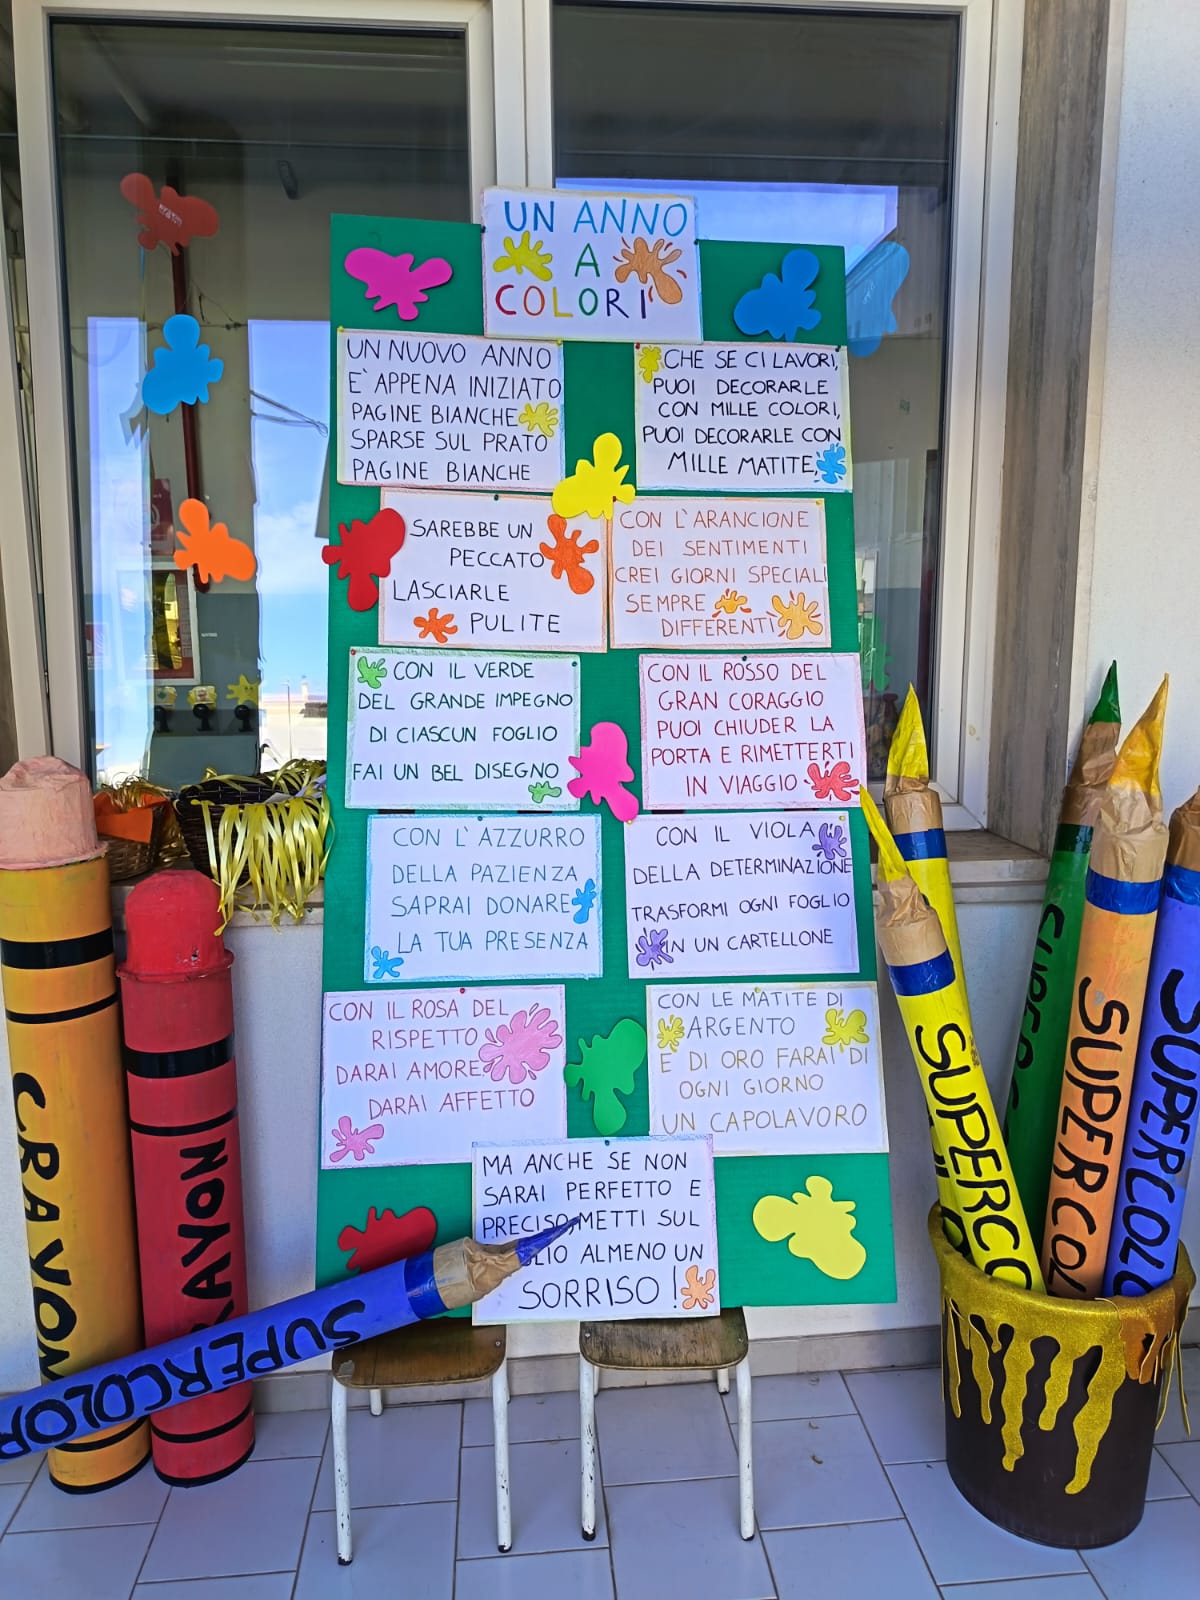 UN ANNO
A
COLORI
UN NUOVO ANNO
E` APPENA INIZIATO
PAGINE BIANCHE
SPARSE SUL PRATO
PAGINE BIANCHE
CHE SE CI LAVORI,
PUOI DECORARLE
CON MILLE COLORI,
PUOI DECORARLE CON
MILLE MATITE,
SAREBBE UN
PECCATO
LASCIARLE
PULITE
CON L'ARANCIONE
DEI SENTIMENTI
CREI GIORNI SPECIALI
SEMPRE
DIFFERENTI
CON IL VERDE
DEL GRANDE IMPEGNO
DI CIASCUN FOGLIO
FAI UN BEL DISEGNO
CON IL ROSSO DEL
GRAN CORAGGIO
PUOI CHIUDER LA
PORTA E RIMETTERTI
IN VIAGGIO
CON L'AZZURRO
DELLA PAZIENZA
SAPRAI DONARE
LA TUA PRESENZA
CON IL VIOLA
DELLA DETERMINAZIONE
TRASFORMI OGNI FOGLIO
IN UN CARTELLONE
CON IL ROSA DEL
RISPETTO
DARAI AMORE
DARAI AFFETTO
CON LE MATITE DI
ARGENTO
E DI ORO FARAI DI
OGNI GIORNO
UN CAPOLAVORO
MA ANCHE SE NON
SARAI PERFETTO E
PRECISO, METTI SUL
GLIO ALMENO UN
SORRISO!
CRAYON
CRAYON
SUPERCOLOR
SUPERCO
SUPERC
SUPERCOL
SUPERCOLO